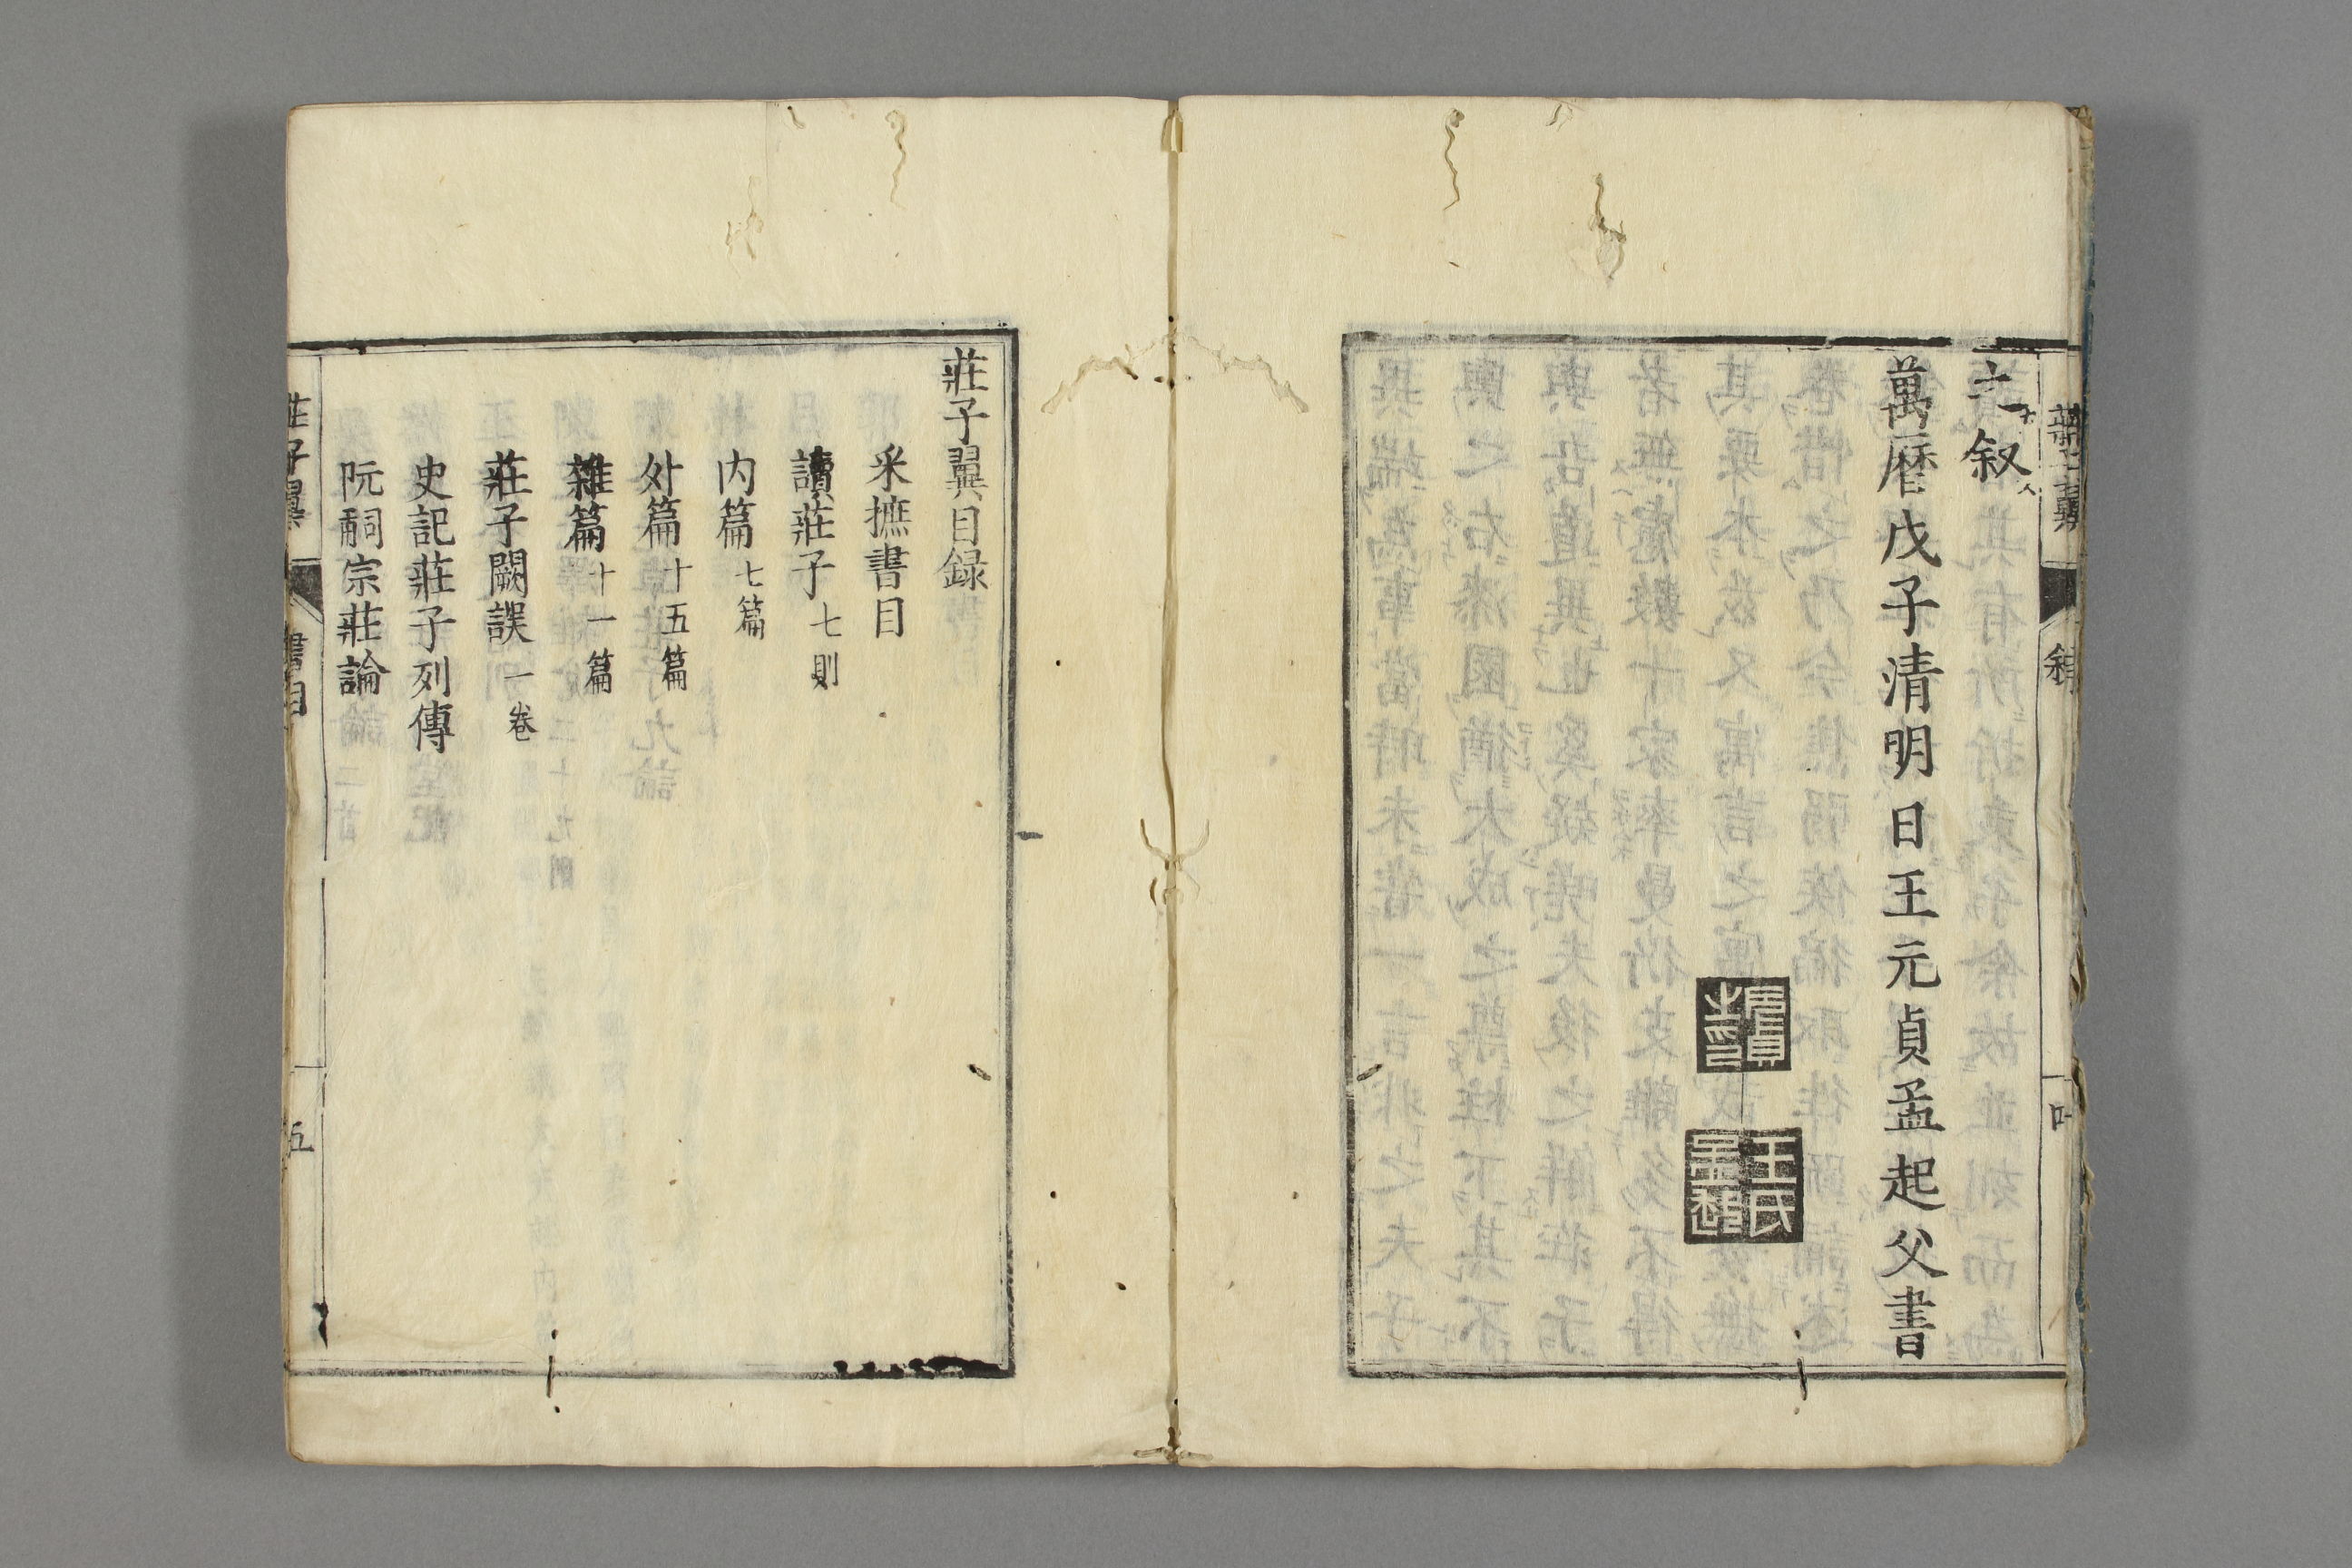 之叙
萬曆戊子清明日王元貞孟起父書
王氏孟起
莊子翼目録
采摭書目
讀莊子七則
内篇七篇
外篇十五篇
雜篇十一篇
莊子闕誤一卷
史記莊子列傳
阮嗣宗莊論
莊子翼 書目 五